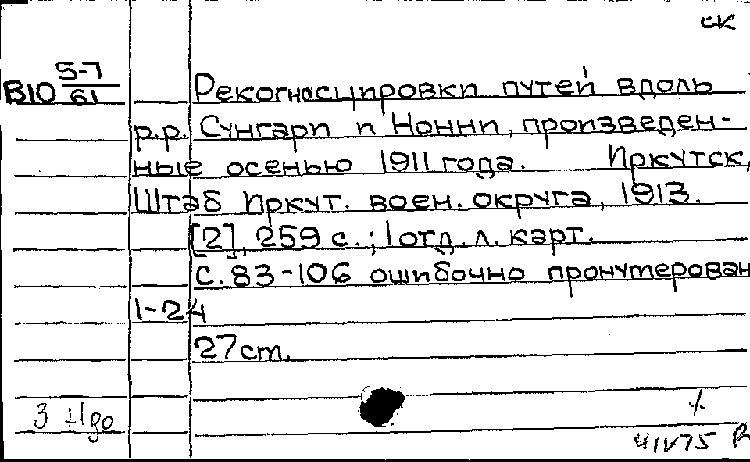 ск
В10 5-7/61 Рекогносцировки путей вдоль
р.р. Сунгари и Нонни, произведен-
ные осенью 1911 года. Иркутск,
Штаб Иркут. воен. округа, 1913.
[2], 259 с.; 1 отд. л. карт.
с. 83-106 ошибочно пронумерован
1-24
27 cm.
3
41V75 R